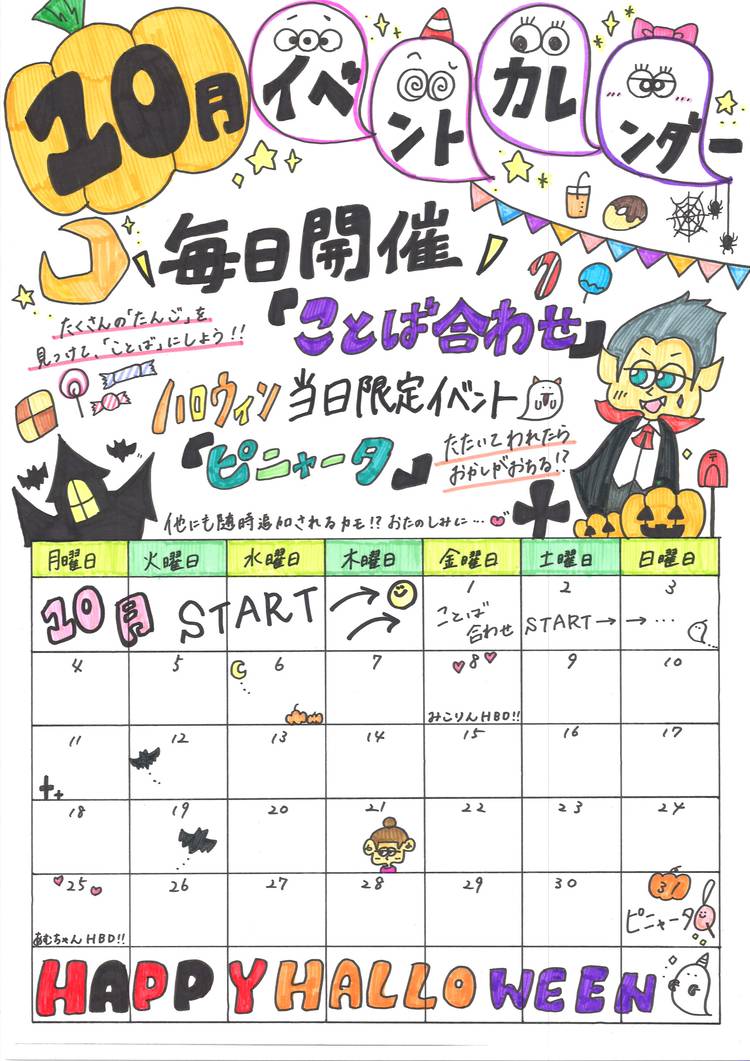 10月
イベントカレンダー
毎日開催
たくさんの「たんご」を
見つけて、「ことば」にしよう!!
『ことば合わせ』
ハロウィン当日限定イベント
『ピニャータ』
たたいてわれたら
おかしがおちる!?
他にも随時追加されるカモ!?おたのしみに…
月曜日 火曜日 水曜日 木曜日 金曜日 土曜日 日曜日
10月 START
1 2 3
ことば
合わせ
START→ →…
4 5 6 7 8 9 10
みこりんHBD!!
11 12 13 14 15 16 17
18 19 20 21 22 23 24
25 26 27 28 29 30 31
あむちゃんHBD!!
ピニャータ
HAPPY HALLOWEEN